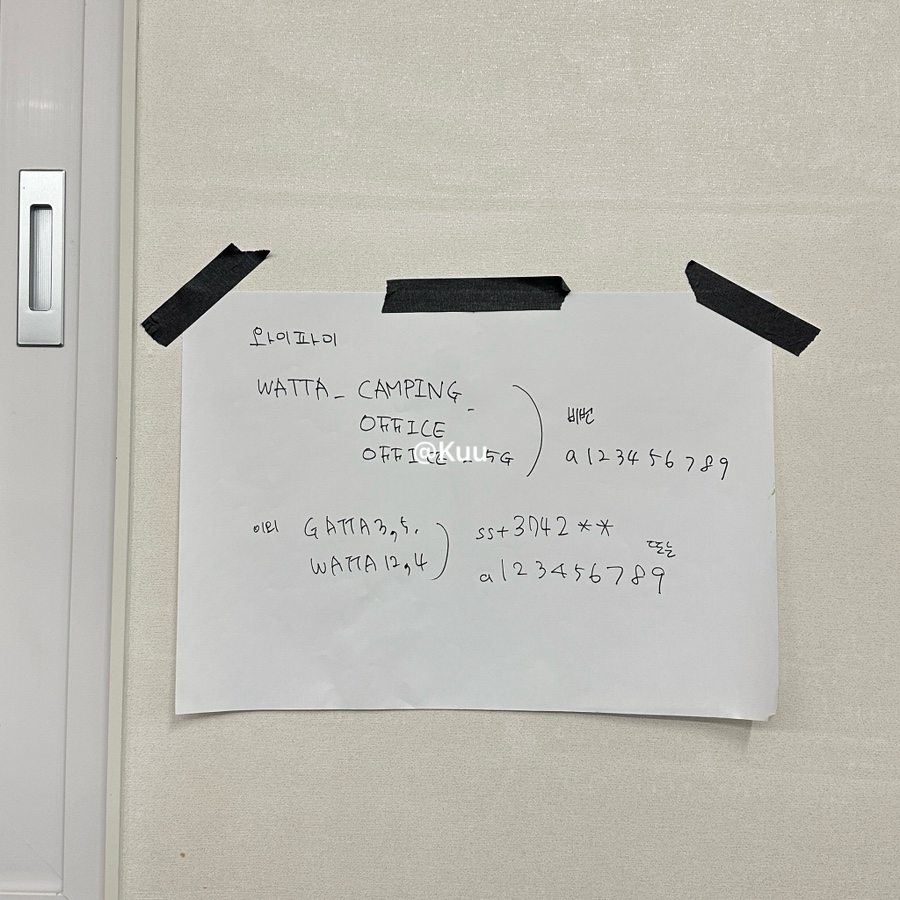 와이파이
WATTA_ CAMPING_
OFFICE
OFFICE_5G
비번
a123456789
@Kuu
이외 GATTA3,5.
WATTA12,4
ss+3742**
또는
a123456789